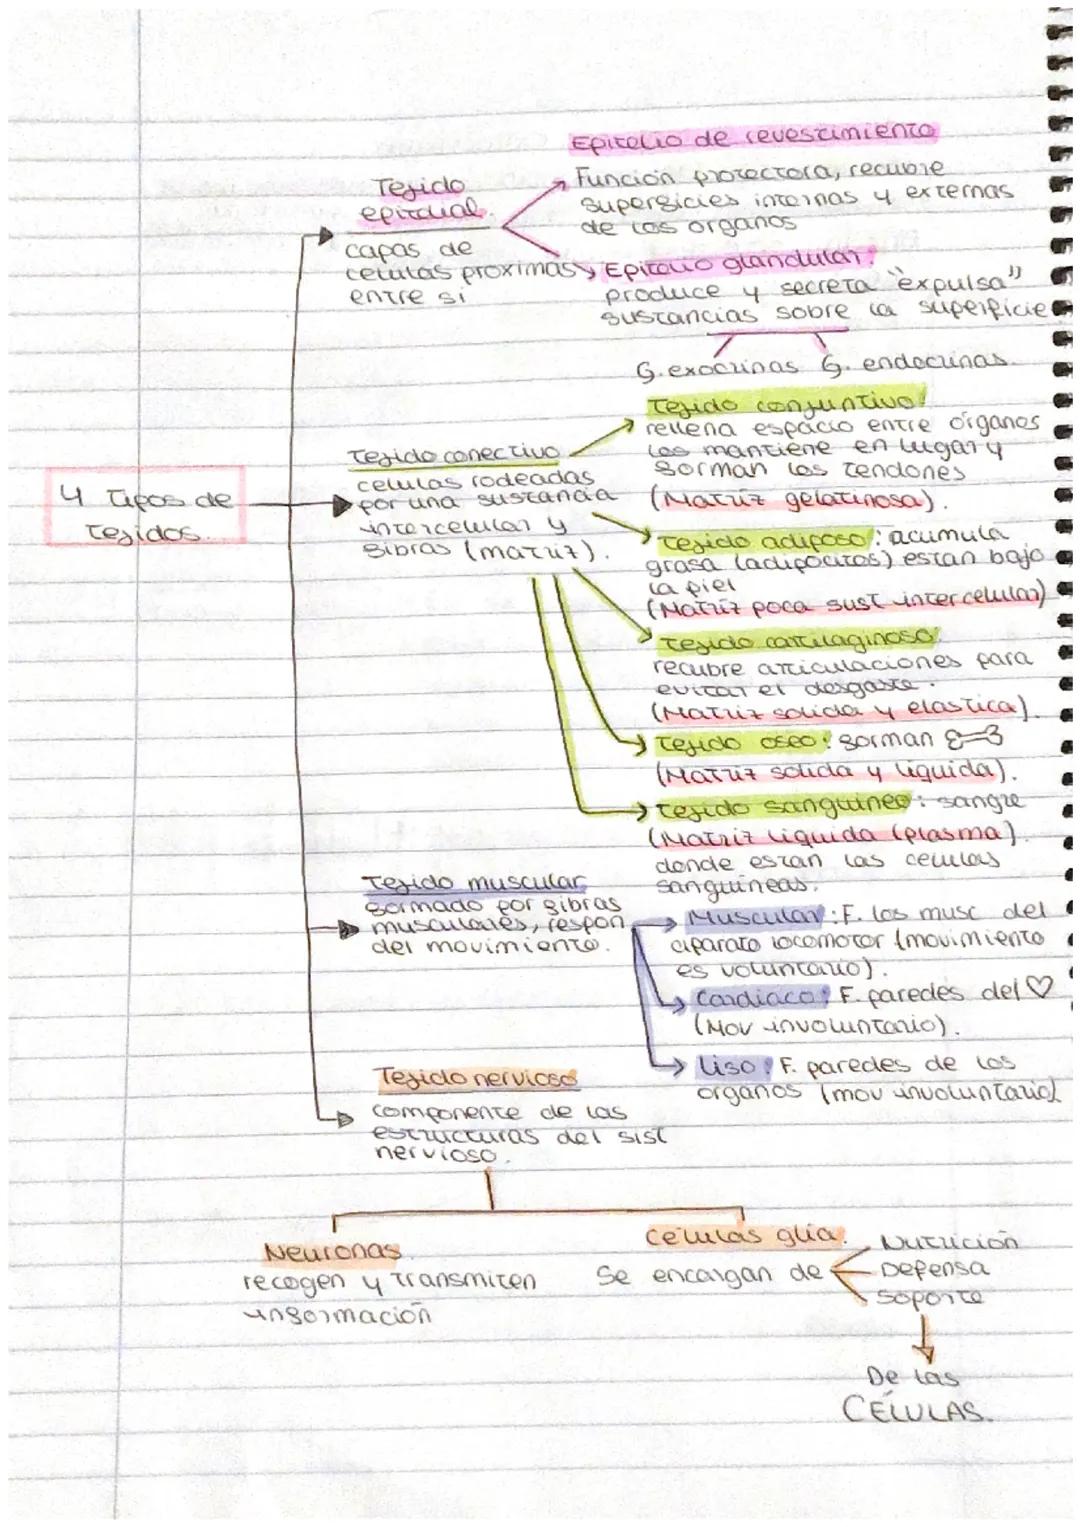 Epitelio de revestimiento
Tejido
epitelial.
Función protectora, recubre
superficies internas y externas
de los organos
capas de
celulas proximas
entre si
Epitelio glandular:
produce y secreta "expulsa"
sustancias sobre la superficie
G. exocrinas G. endocrinas.
4 tipos de
tejidos.
Tejido conectivo
celulas rodeadas
por una sustancia
intercelular y
fibras (matriz).
Tejido conjuntivo:
rellena espacio entre órganos
los mantiene en lugar y
forman los tendones
(Matriz gelatinosa).
Tejido adiposo: acumula
grasa (adipocitos) estan bajo
la piel
(Matriz poca sust intercelular)
Tejido cartilaginoso:
recubre articulaciones para
evitar el desgaste.
(Matriz solida y elastica).
Tejido oseo: forman
(Matriz solida y liquida).
Tejido sanguineo: sangre
(Matriz liquida (plasma).
donde estan las celulas
sanguineas.
Tejido muscular
formado por fibras
musculares, respon
del movimiento.
Muscular: F. los musc del
aparato locomotor (movimiento
es voluntario).
Cardiaco: F. paredes del ♡
(Mov involuntario).
Liso: F. paredes de los
organos (mov involuntario)
Tejido nervioso
componente de las
estructuras del sist
nervioso.
Neuronas.
recogen y transmiten
información
células glia.
Se encargan de
Nutrición
Defensa
soporte
De las
CÉLULAS.